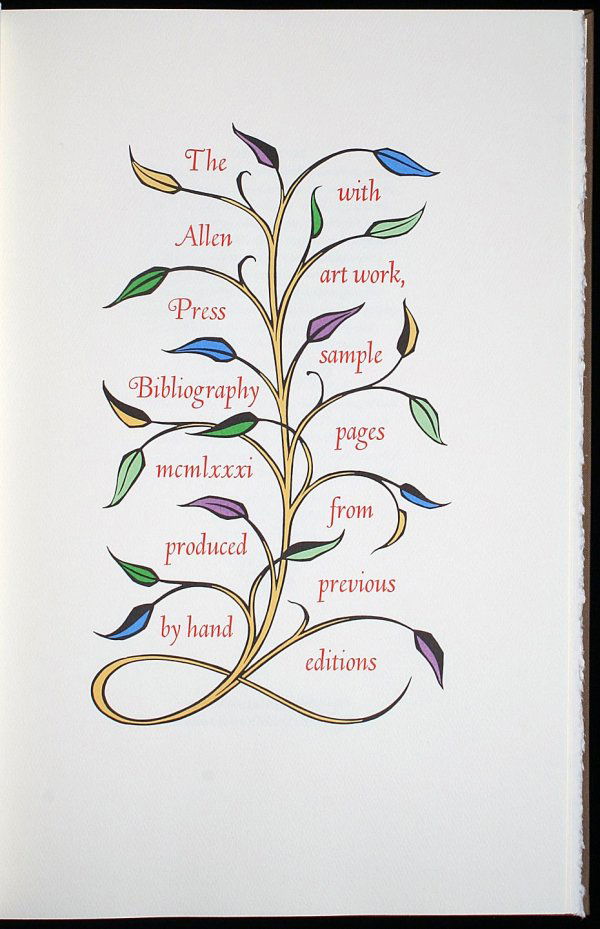 The
Allen
Press
Bibliography
mcmlxxxi
produced
by hand
with
art work,
sample
pages
from
previous
editions